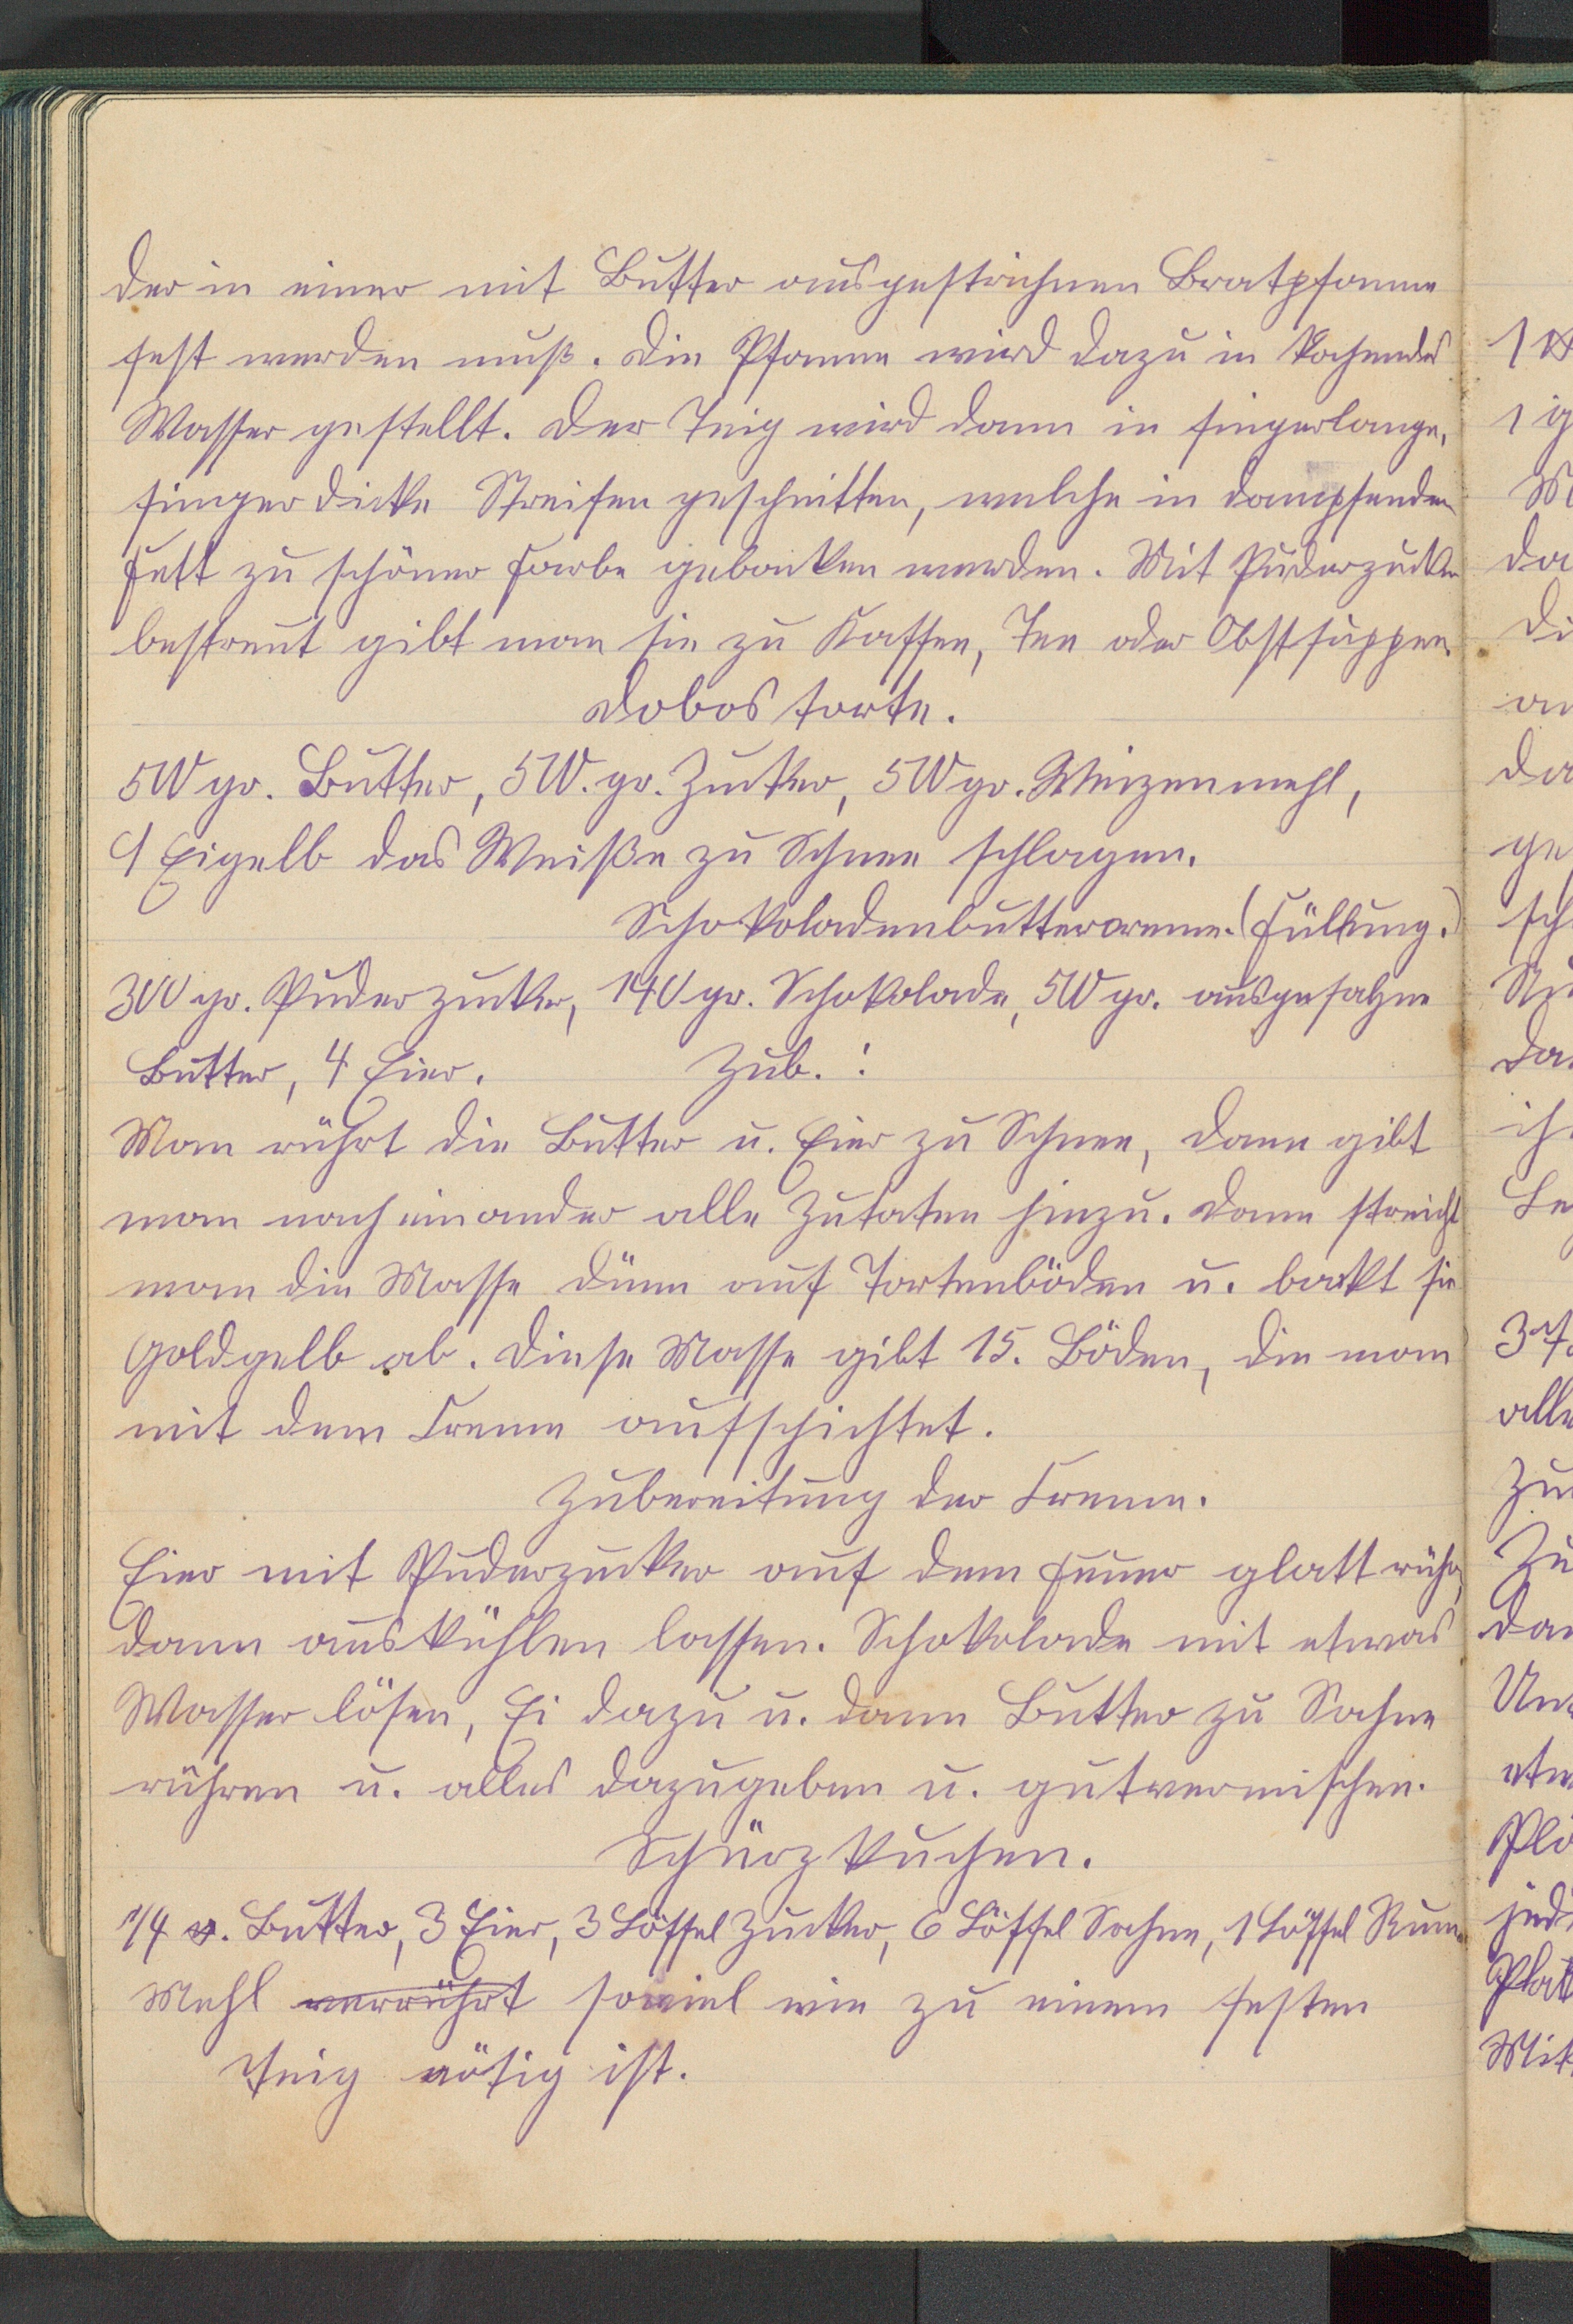 der in einer mit Butter ausgestrichnen Bratpfanne
fest werden muß. Die Pfanne wird dazu in kochendes
Wasser gestellt. Der Teig wird dann in fingerlange,
fingerdicke Streifen geschnitten, welche in dampfenden
Fett zu schöner Farbe gebacken werden. Mit Puderzucker
bestreut gibt man sie zu Kaffee, Tee oder Obstsuppen.
Dobostorte.
500 gr. Butter, 500. gr. Zucker, 500 gr. Weizenmehl,
9 Eigelb das Weiße zu Schnee schlagen.
Schokoladenbuttercreme. (Füllung.)
300 gr. Puderzucker, 140 gr. Schokolade, 500 gr. ausgesahne
Butter, 4 Eier. Zub. :
Man rührt die Butter u. Eier zu Schnee, dann gibt
man nacheinander alle Zutaten hinzu. Dann streicht
man die Masse dünn auf Tortenböden u. backt sie
goldgelb ab. Diese Masse gibt 15. Böden, die man
mit dem Creme aufschichtet.
Zubereitung der Creme.
Eier mit Puderzucker auf dem Feuer glatt rühr,
dann auskühlen lassen. Schokolade mit etwas
Wasser lösen, Ei dazu u. dann Butter zu Sahne
rühren u. alles dazugeben u. gutvermischen.
Schürzkuchen.
1/4 ℔. Butter, 3 Eier, 3 Löffel Zucker, 6 Löffel Sahne, 1 Löffel Rum
Mehl verrührt soviel wie zu einem festen
Teig nötig ist.